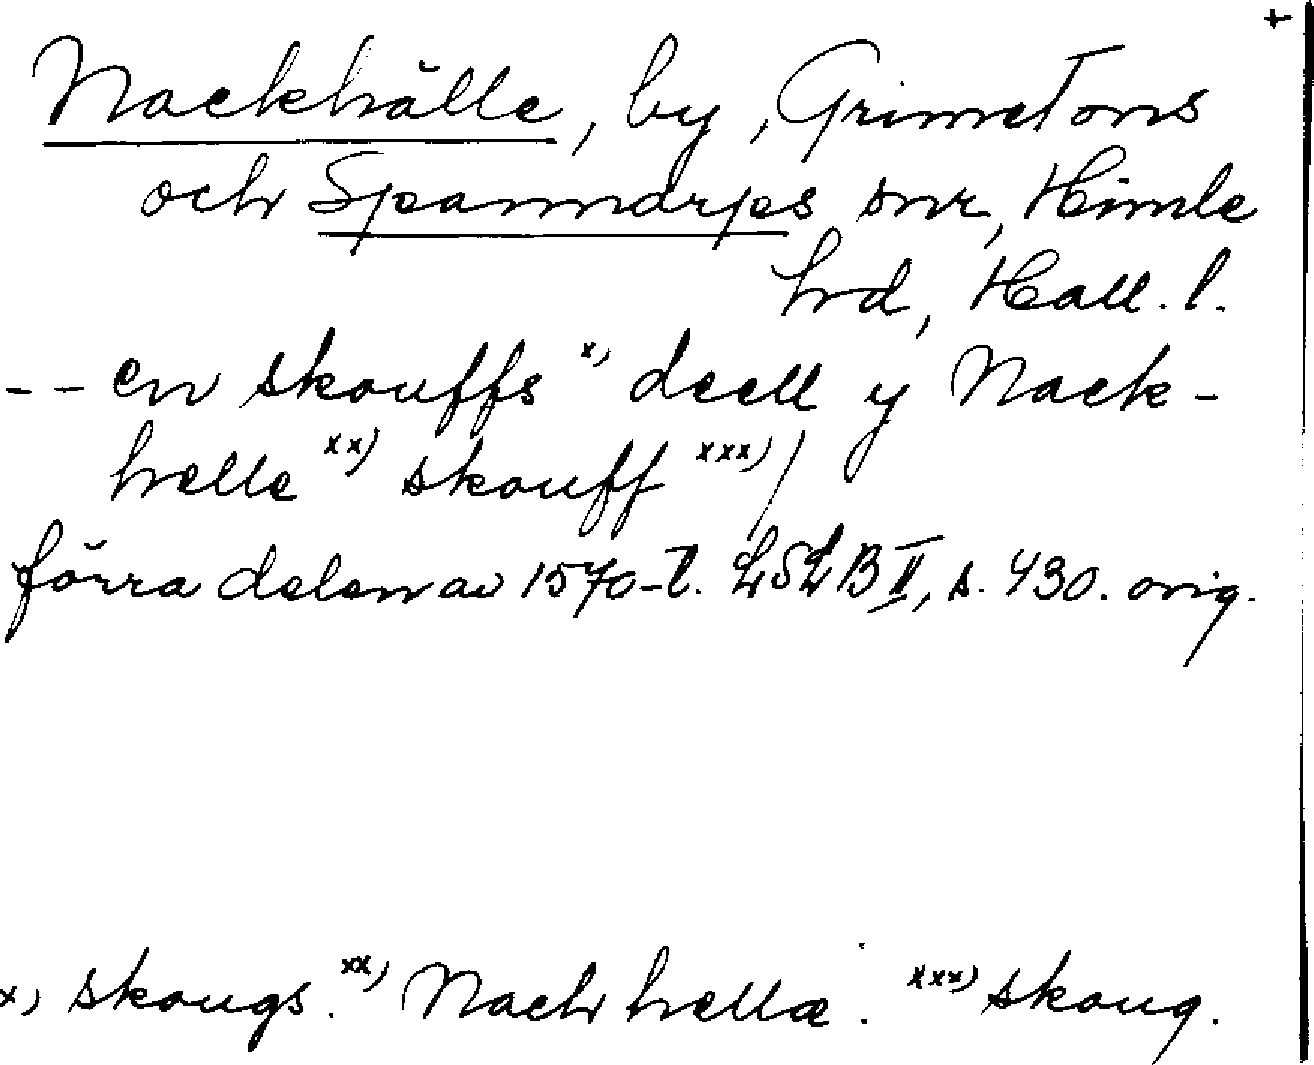 +
Nackhälle, by, Grimetons
och Spannarps snr, Himle
hrd, Hall. l.
-- en skouffs x) deell y Nack-
helle xx) skouff xxx)/
förra delen av 1570-t. LSLB II, s. 430. orig.
x) skougs. xx) Nachhellæ. xxx) skoug.